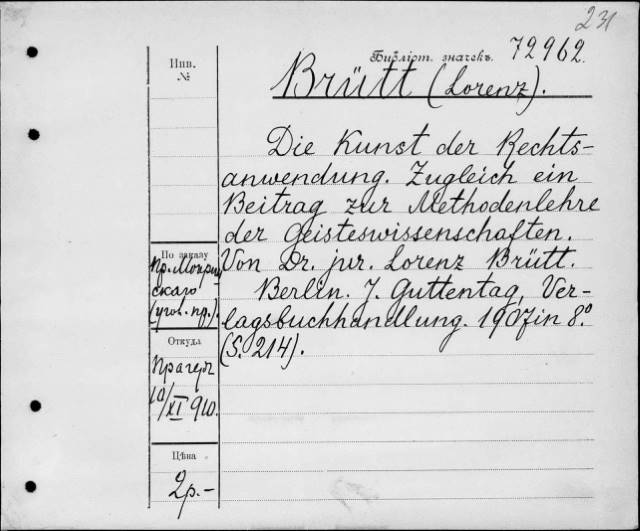 231
Инв.
№
Библіот. значекъ. 72962.
Brütt (Lorenz).
Die Kunst der Rechts-
anwendung. Zugleich ein
Beitrag zur Methodenlehre
der Geisteswissenschaften.
Von Dr. jur. Lorenz Brütt.
Berlin. J. Guttentag, Ver-
lagsbuchhandlung. 1907 in 8.º
(S. 214).
По заказу
пр. Мокрин
скаго
(угол. пр.).
Откуда
Прагеръ
10/XI 910.
Цѣна
2р.-